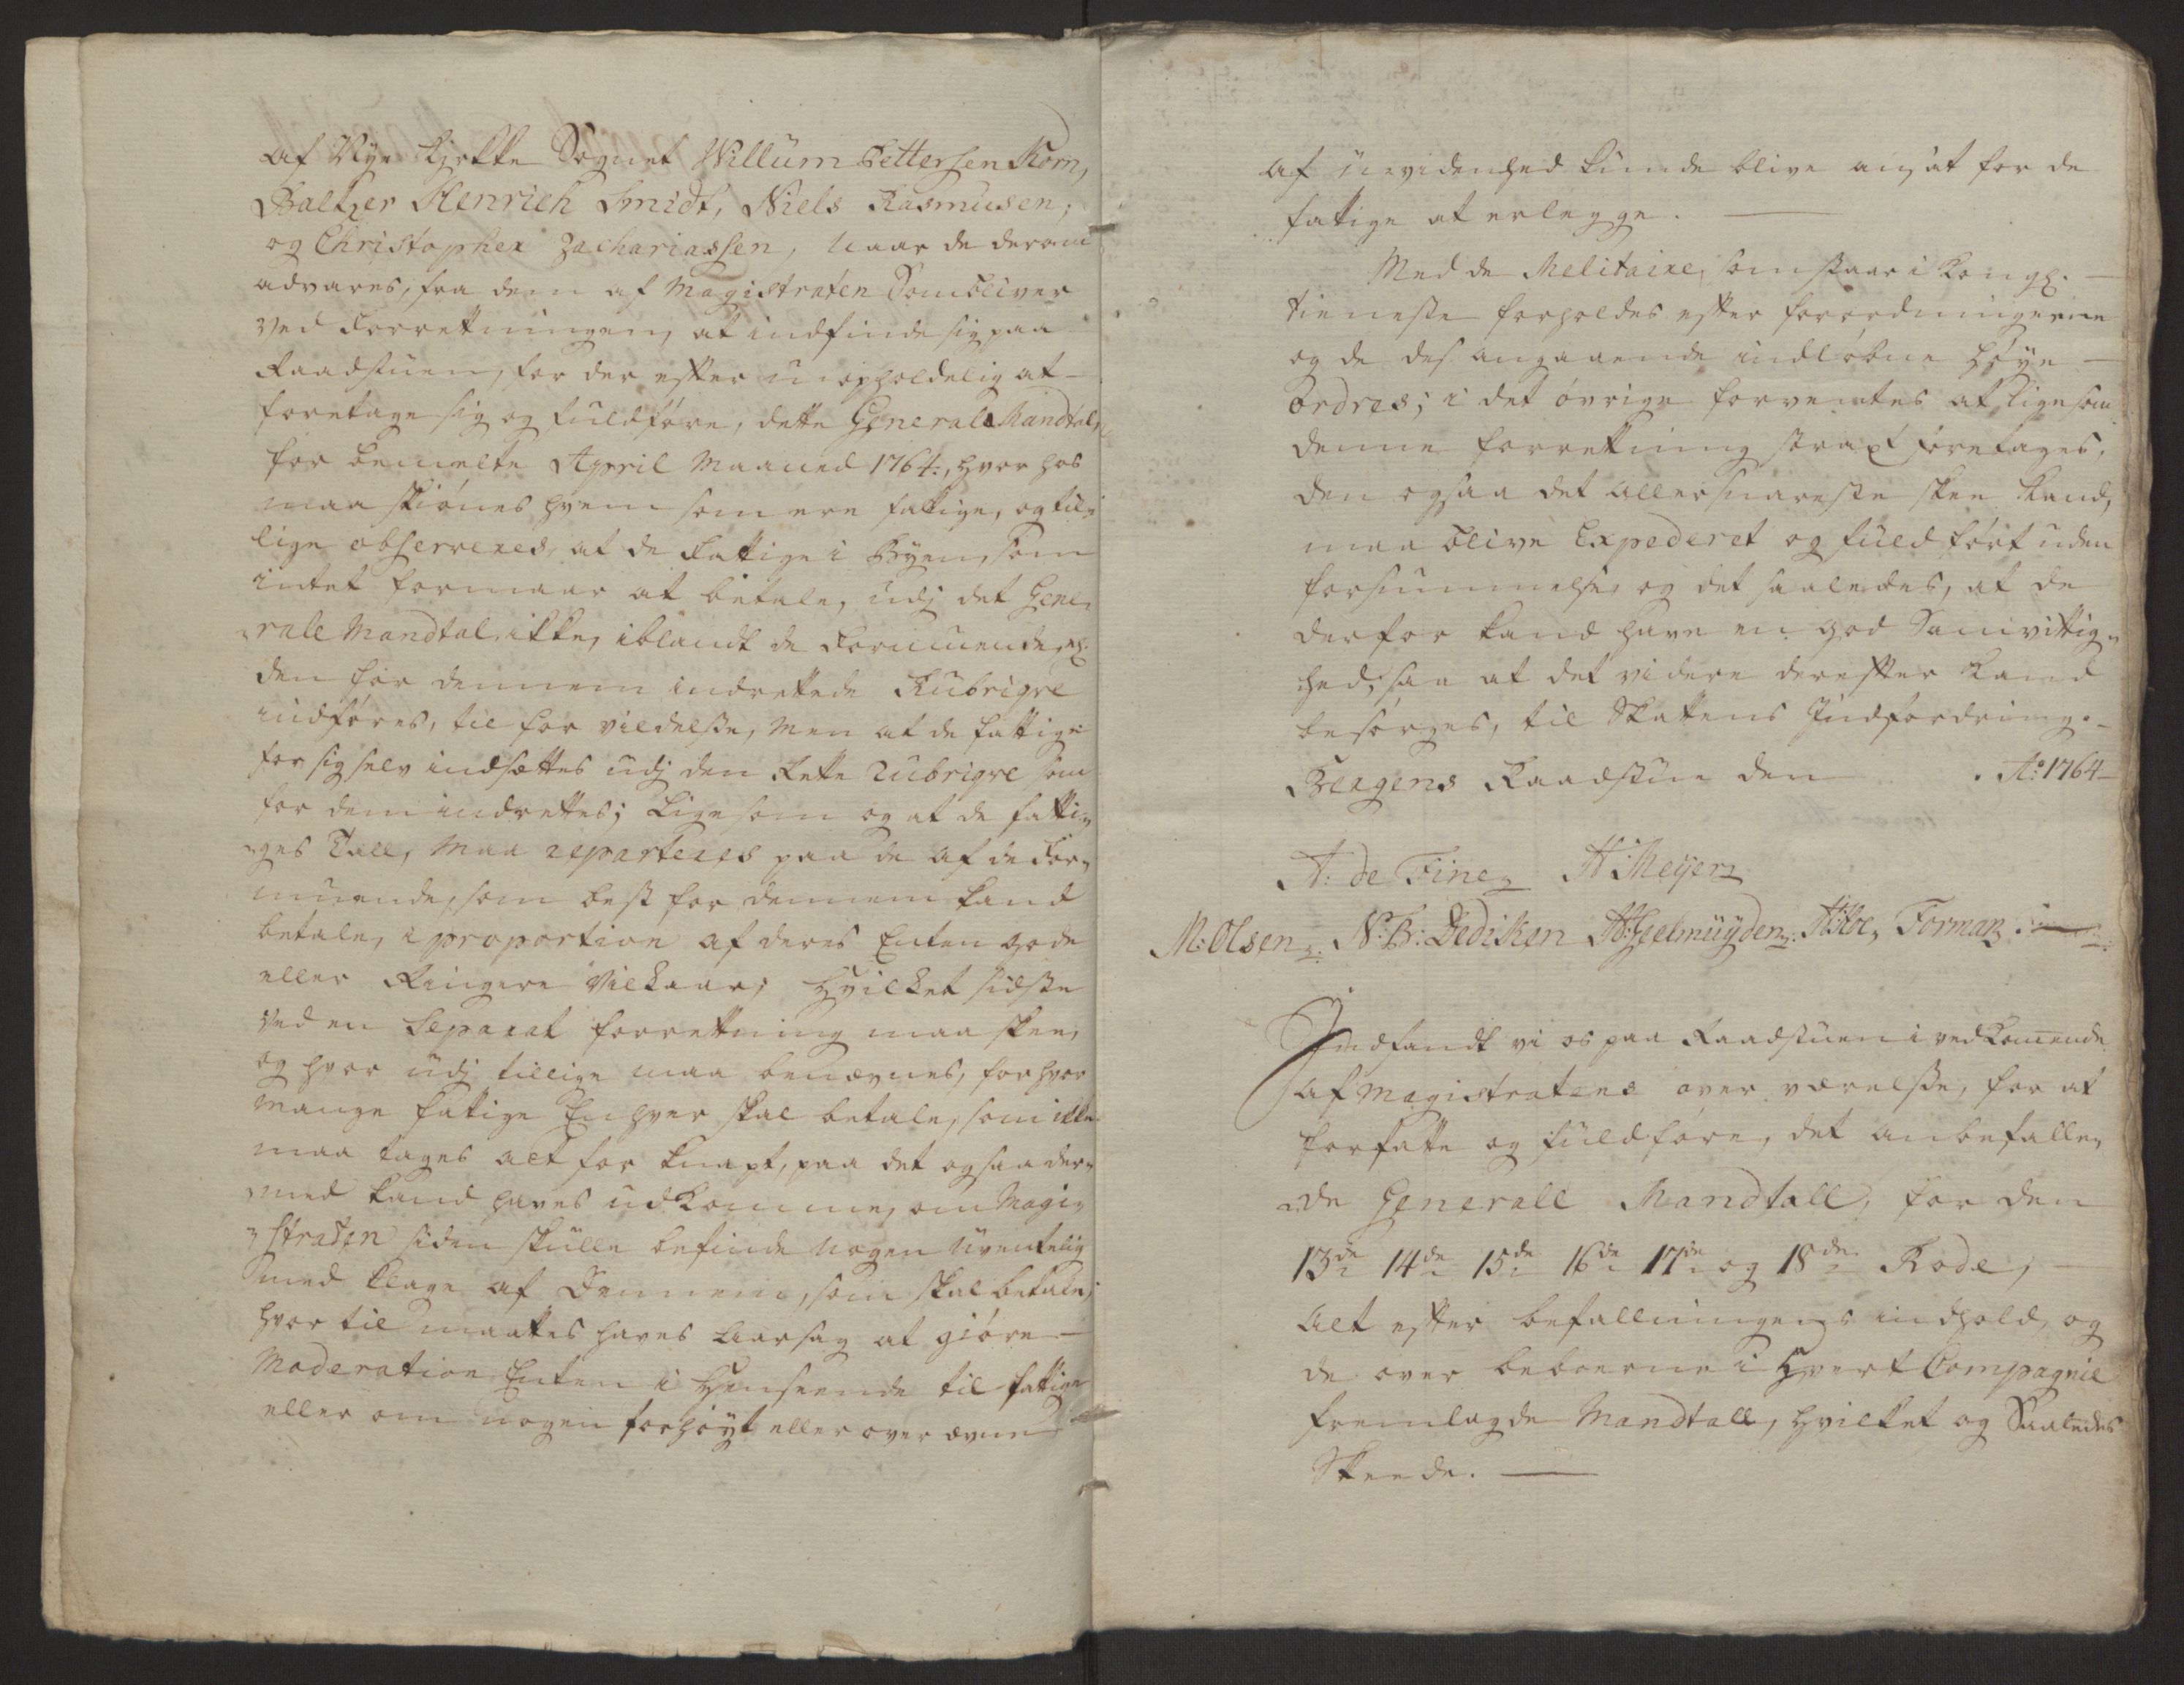 af Nye Kjrkke Sognet Willum Pettersen Korn,
Baltzer Henrich Smidt, Niels Rasmusen,
og Christopher Zachariassen, naar de derom
advares, fra dem af Magistraten Som bliver
ved Forrettningen, at indfinde sig paa
Raadstuen, for der efter uopholdelig at
foretage sig og fuldföre, dette General Mandtal,
for bemelte April Maaned 1764., hvor hos
maa skiönes hvem som ere fattige, og til-
lige observeres, at de Fattige i Byen, som
intet formaar at betale, udj det Gene-
rale Mandtal, ikke, iblandt de Formuende,
den for dennem indrettede Rubriqve
indföres, til for vildelsse, Men at de fattige
for sig selv indsættes udj den Rette Rubriqve som
for dem indrettes; Ligesom og at de fatti-
ges Tall, Maa reparteres paa de af de For-
muende, som best for dennem kand
betale, i proportion af deres Enten gode
eller Ringere Vilkaar; Hvilket sidste
ved en Separat forrettning maa skee,
og hvor udj tillige maa benævnes, for hvor
mange fattige Enhver skal betale, som ikke
maa tages alt for knapt, paa det og saa der-
med kand haves udkomme, om Magi-
straten siden skulle befinde nogen Uventelig
med klage af Dennem, som skal betale,
hvor til maattes haves Aarsag at giöre
Moderation Enten i Henseende til fattige
eller om nogen forhöyt eller over ævne
af uvidenhed kunde blive ansat for de
fattige at erlegge.
Med de Melitaire, som staar i Kongl.
tieneste forholdes efter forordningerne
og de des angaaende indlöbne Höye
Ordres; i det övrige forventes at ligesom
denne forrettning strax foretages,
den ogsaa det allersnareste skee kand,
maa blive Expederet og fuldfört uden
forsummelse, og det saaledes, at de
derfor kand have en god Samvittig-
hed, saa at det videre derefter kand
besörges, til Skattens Indfordring.
Bergens Raadstue den . Ao. 1764
A: de Fine H Meyer
M: Olsen N: B: Dediken H: Geelmuyden Forman
Indfandt vi os paa Raadstuen i vedkommende
af Magistratens over værelsse, for at
forfatte og fuldföre, det anbefalle-
de Generall Mandtall, for den
13de 14de 15de 16de 17de og 18de Rode,
alt efter befallningens indhold, og
de over beboerne i Hvert Compagnie
fremlagde Mandtall, Hvilket og Saaledes
Skeede.